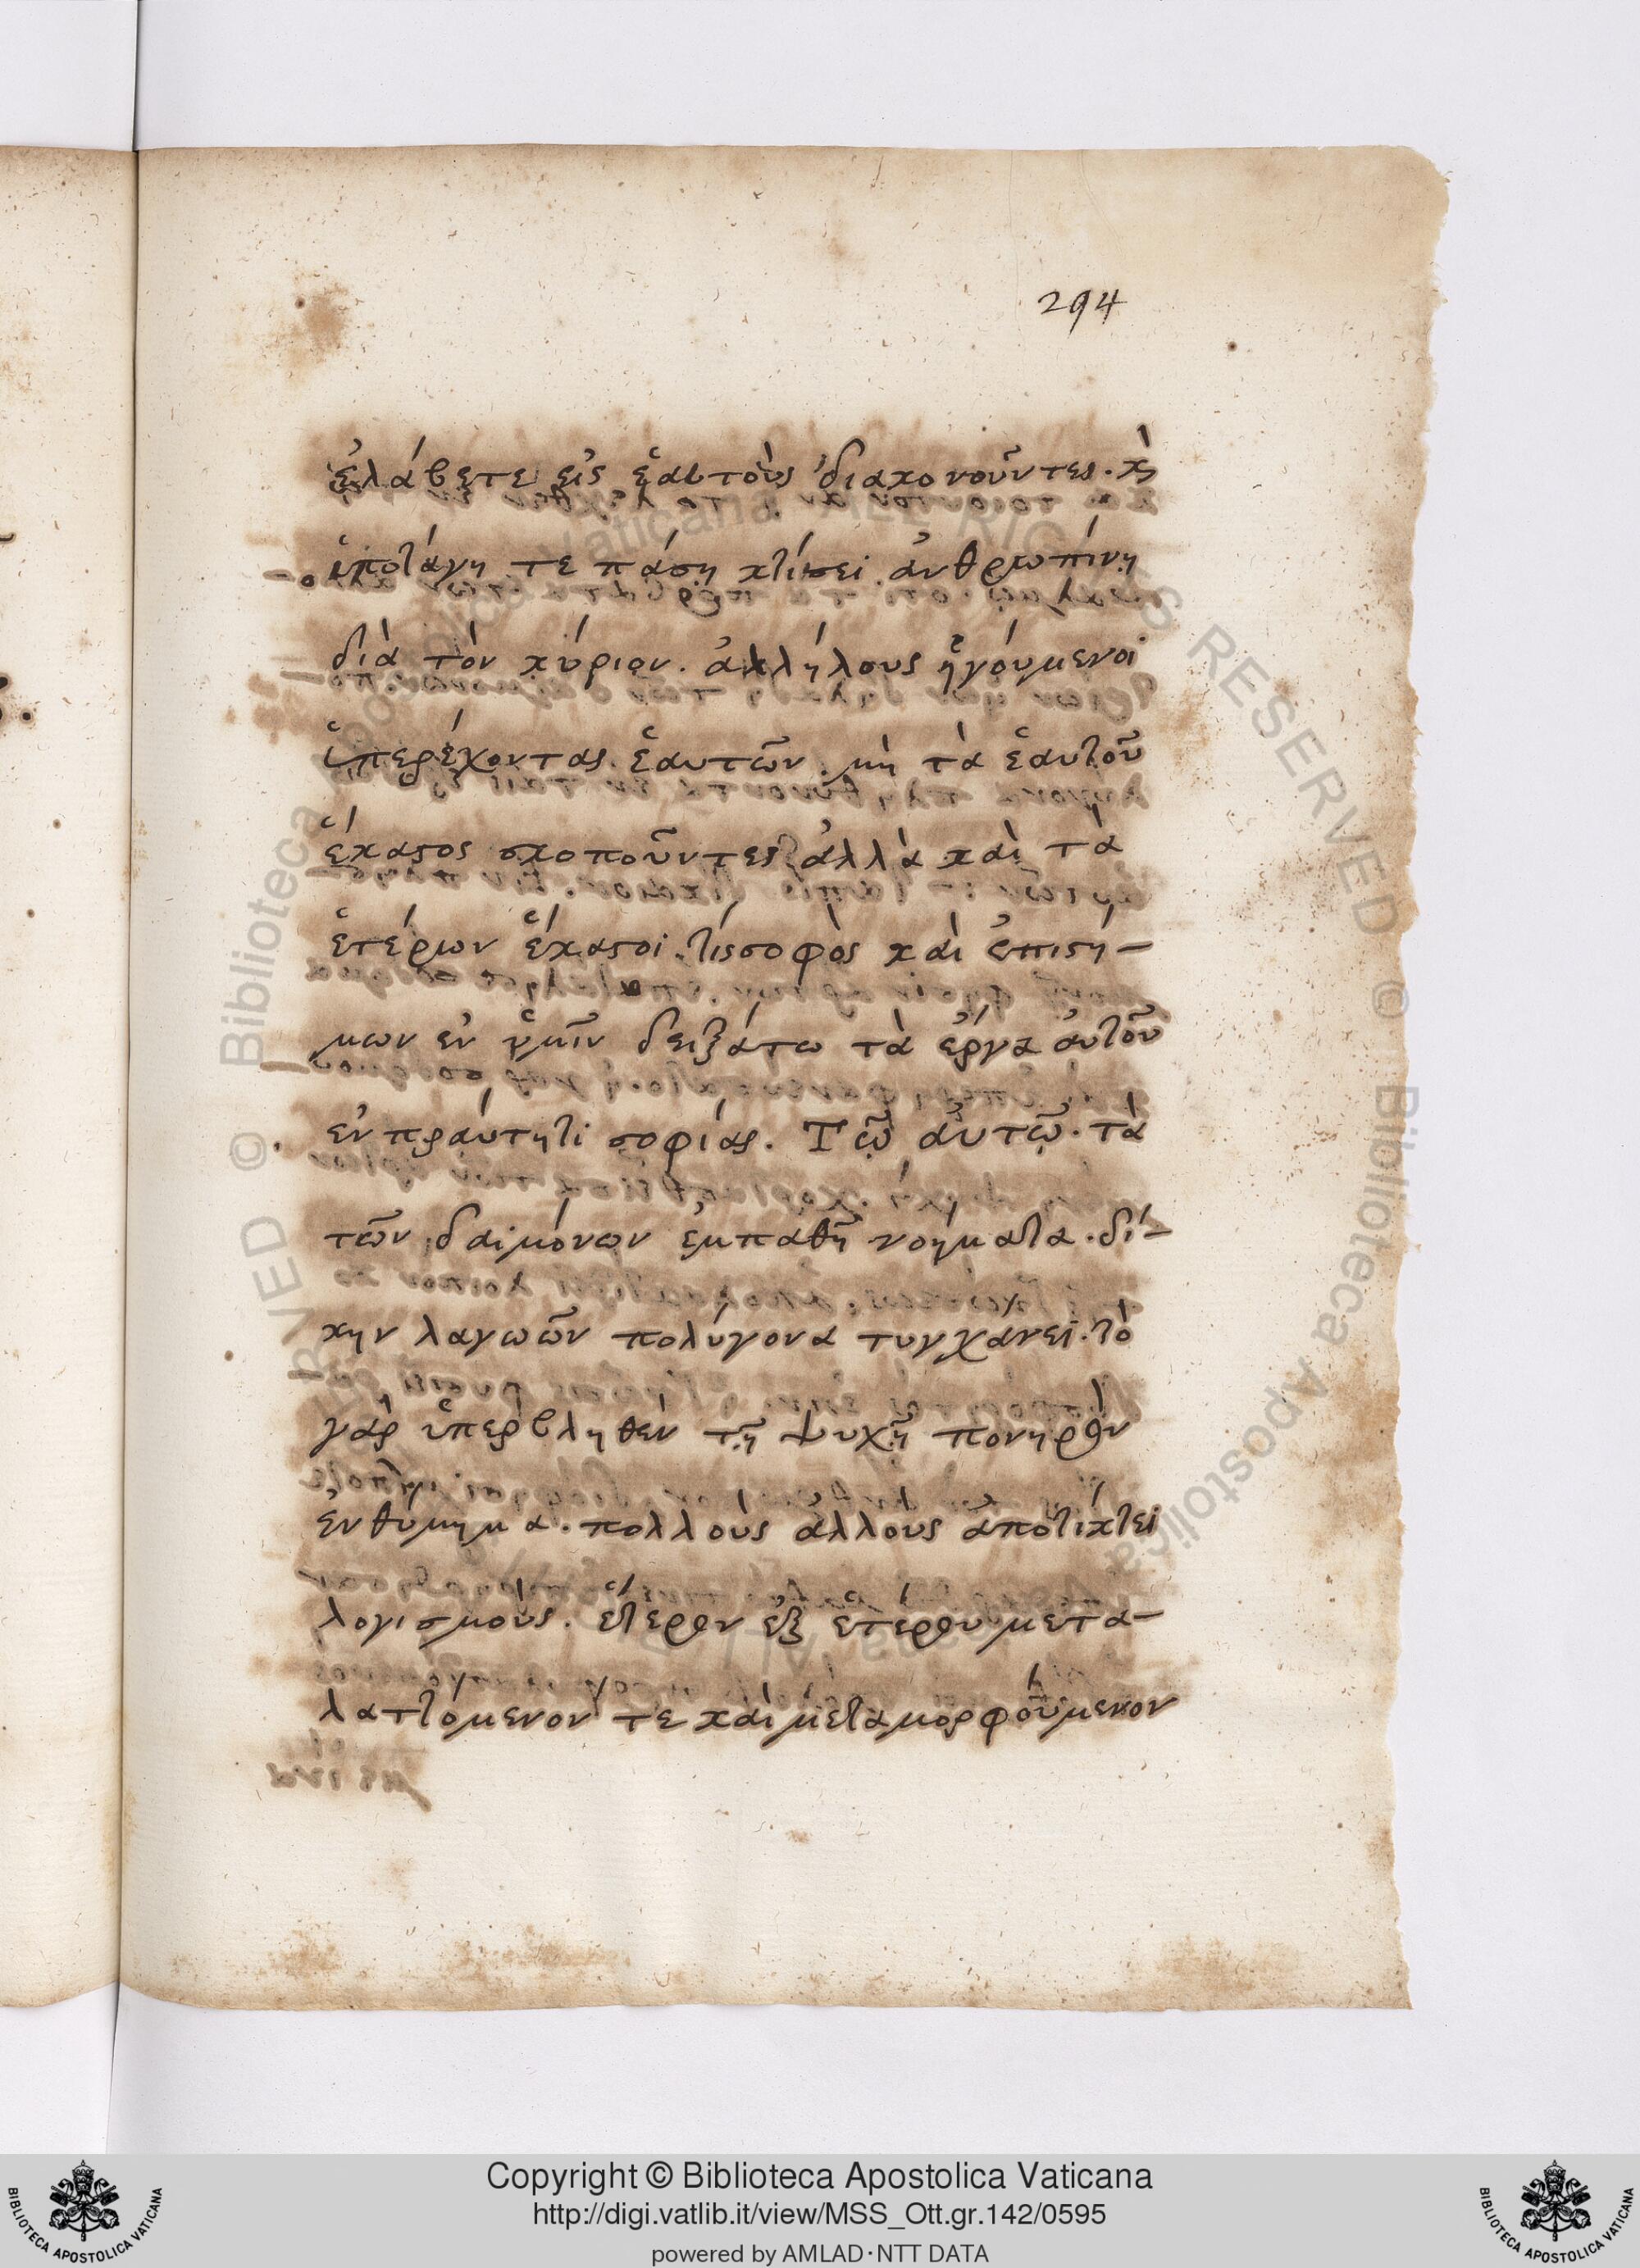 294
ἐλάβετε εἰς ἑαυτοὺς διακονοῦντες. κὶ
ὑποτάγη τε πάση κτίσει ἀνθρωπίνη
διὰ τὸν κύριον. ἀλλήλους ἡγούμενοι
ὑπερέχοντας ἑαυτῶν. μὴ τὰ ἑαυτοῦ
ἕκαστος σκοποῦντες ἀλλὰ καὶ τὰ
ἑτέρων ἕκαστοι. τίς σοφὸς καὶ ἐπιστή-
μων ἐν ὑμῖν δειξάτω τὰ ἔργα αὐτοῦ
ἐν πραύτητι σοφίας. Τῶ αὐτῶ. τὰ
τῶν δαιμόνων ἐμπαθῆ νοήματα. δί-
κην λαγωῶν πολύγονα τυγχάνει. τὸ
γὰρ ὑπερβληθὲν τῆ ψυχῆ πονηρὸν
ἐνθύμημα. πολλοὺς ἄλλους ἀποτίκτει
λογισμούς. ἕτερον ἐξ ἑτέρου μετα-
λαττόμενον τε καὶ μεταμορφούμενον
Copyright © Biblioteca Apostolica Vaticana
http://digi.vatlib.it/view/MSS_Ott.gr.142/0595
powered by AMLAD·NTT DATA
BIBLIOTECA APOSTOLICA VATICANA
BIBLIOTECA APOSTOLICA VATICANA